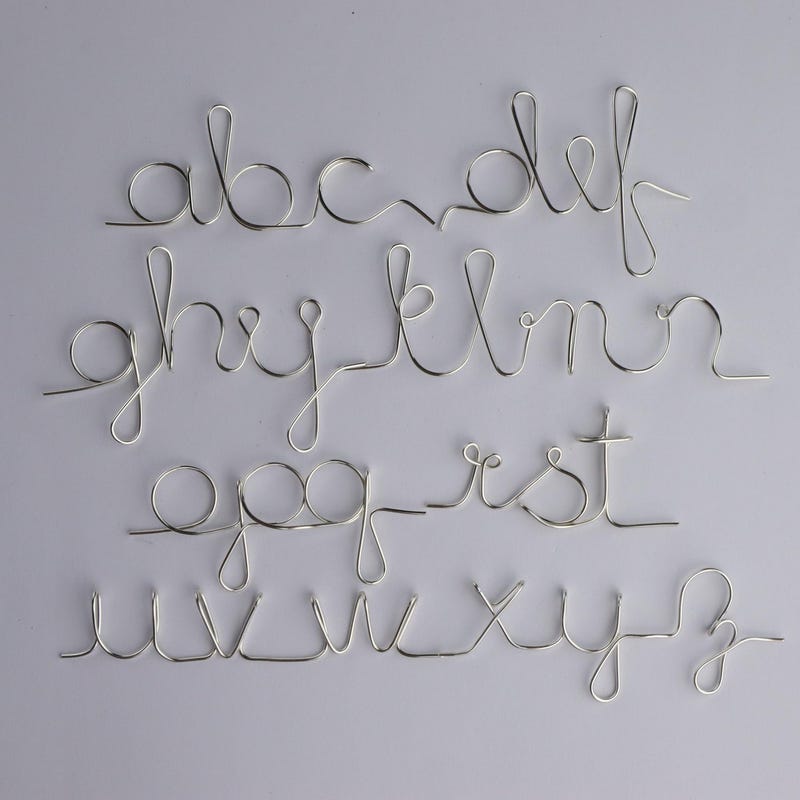 abc def
ghijklmn
opq rst
uvwxyz